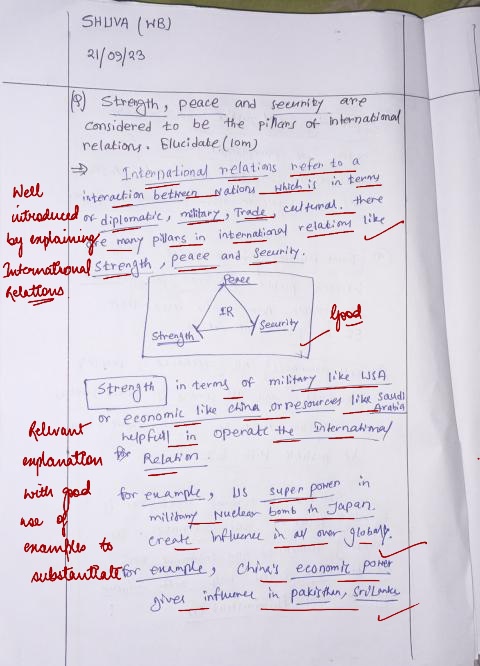 SHUVA (WB)
21/09/23
(Q) Strength, peace and security are
considered to be the pillars of international
relations. Elucidate (10m)
⇒ International relations refer to a
interaction between Nations which is in terms
of diplomatic, military, Trade, cultural. there
are many pillars in international relations like
Strength, peace and security.
Well
introduced
by explaining
International
Relations
Peace
IR
Strength
Security
Good
Strength in terms of military like USA
or economic like china or resources like Saudi
Arabia
helpfull in operate the International
Relation.
Relevant
explanation
with good
use of
examples to
substantiate
for example, US super power in
military Nuclear bomb in Japan.
create influence in all over globaly.
for example, China's economic power
gives influence in pakisthan, Sri Lanka